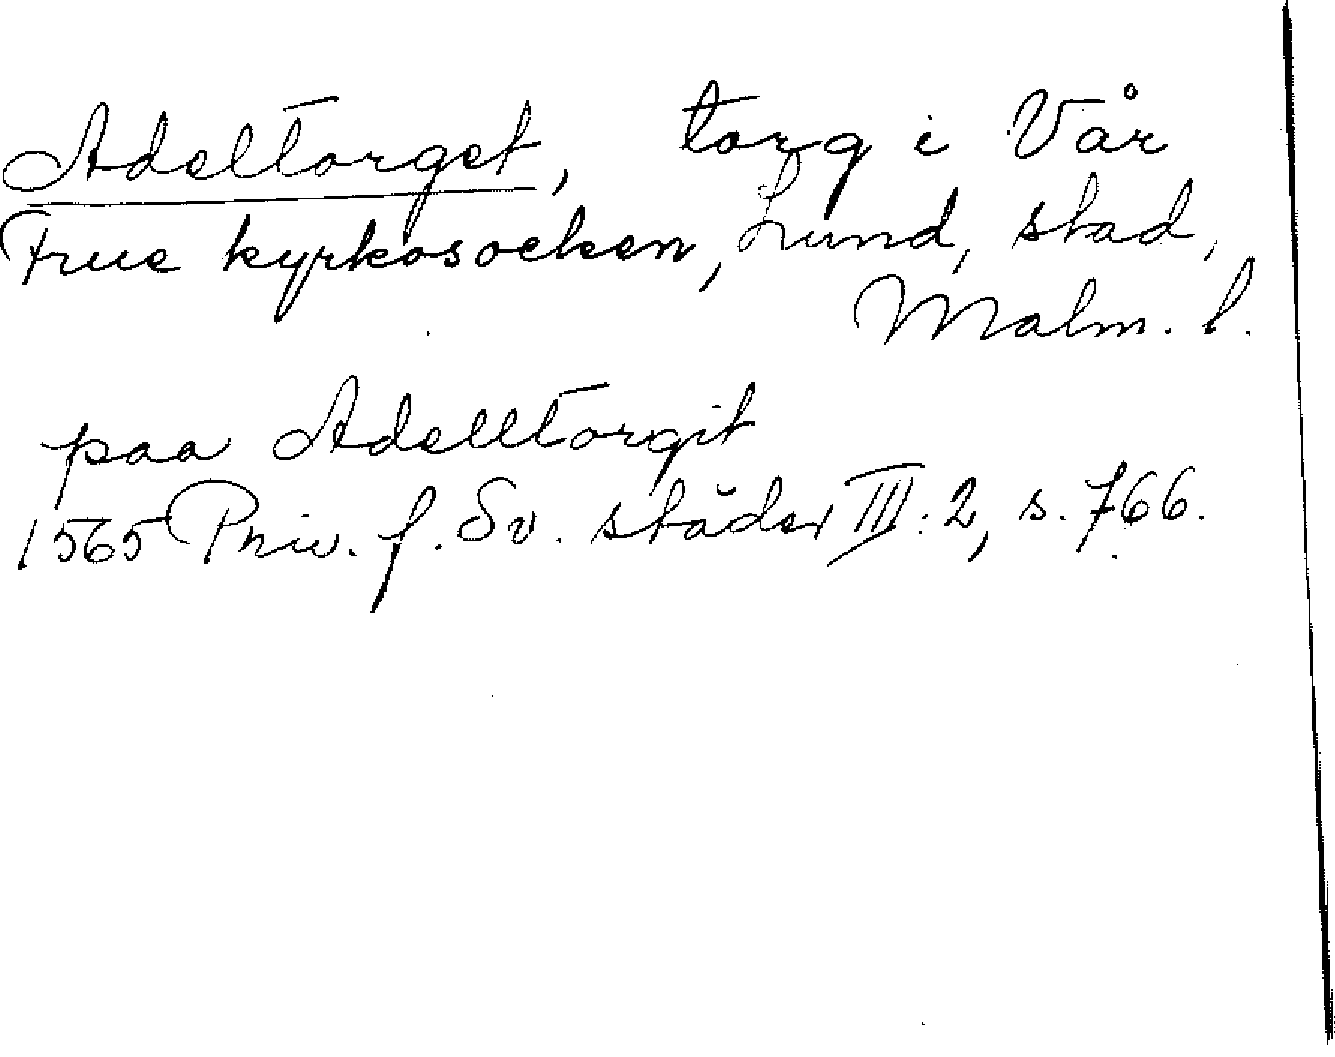 Adeltorget, torg i Vår
Frue kyrkosocken, Lund, stad,
Malm. l.
paa Adelltorgit
1565 Priv. f. Sv. städer III: 2, s. 766.